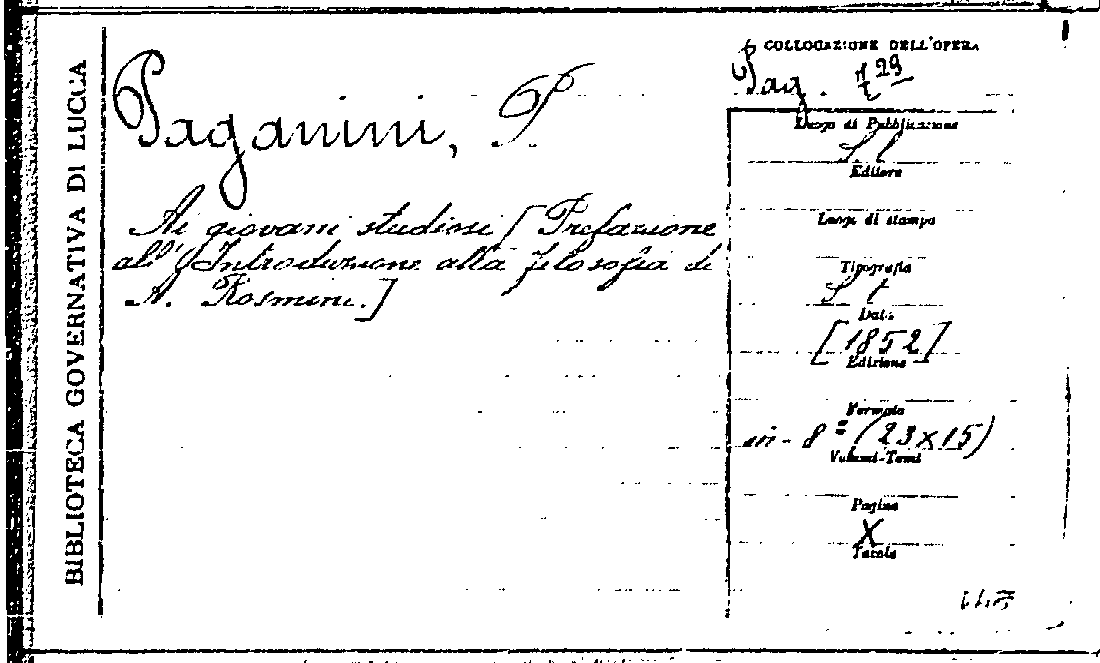 BIBLIOTECA GOVERNATIVA DI LUCCA
Paganini, P.
Ai giovani studiosi [Prefazione
all' Introduzione alla filosofia di
A. Rosmini.]
COLLOCAZIONE DELL'OPERA
Pag.
Luogo di Pubblicazione
S l
Editore
Luogo di stampa
Tipografia
S t
Data
[1852]
Edizione
Formato
in-8º (23x15)
Volumi-Tomi
Pagine
X
Tavole